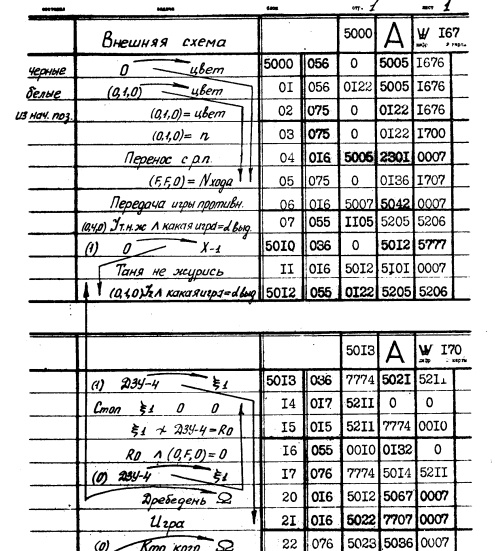 стр. 1 лист 1
Внешняя схема 5000 А W I67
черные 0 цвет 5000 056 0 5005 I676
белые (0,1,0) цвет 0I 056 0I22 5005 I676
из нач. поз. (0,1,0)= цвет 02 075 0 0I22 I676
(0,1,0)= n 03 075 0 0I22 I700
Перенос с р.п. 04 0I6 5005 230I 0007
(F,F,0)= N хода 05 075 0 0I36 I707
Передача игры противн. 06 0I6 5007 5042 0007
(0,4,0) Iт.н.ж ∧ какая игра=d выд. 07 055 II05 5205 5206
(1) 0 X-1 50I0 036 0 50I2 5777
Таня не журись II 0I6 50I2 5I0I 0007
(0,1,0) Iz ∧ какая игра=d выд 50I2 055 0I22 5205 5206
50I3 А W I70
(1) ДЗУ-4 ξ1 50I3 036 7774 502I 52II
Стоп ξ1 0 0 I4 0I7 52II 0 0
ξ1 + ДЗУ-4=R0 I5 0I5 52II 7774 00I0
R0 ∧ (0,F,0)=0 I6 055 00I0 0I32 0
(0) ДЗУ-4 ξ1 I7 076 7774 50I4 52II
Дребедень Ω 20 0I6 50I2 5067 0007
Игра 2I 0I6 5022 7707 0007
(0) Кто кого Ω 22 076 5023 5036 0007